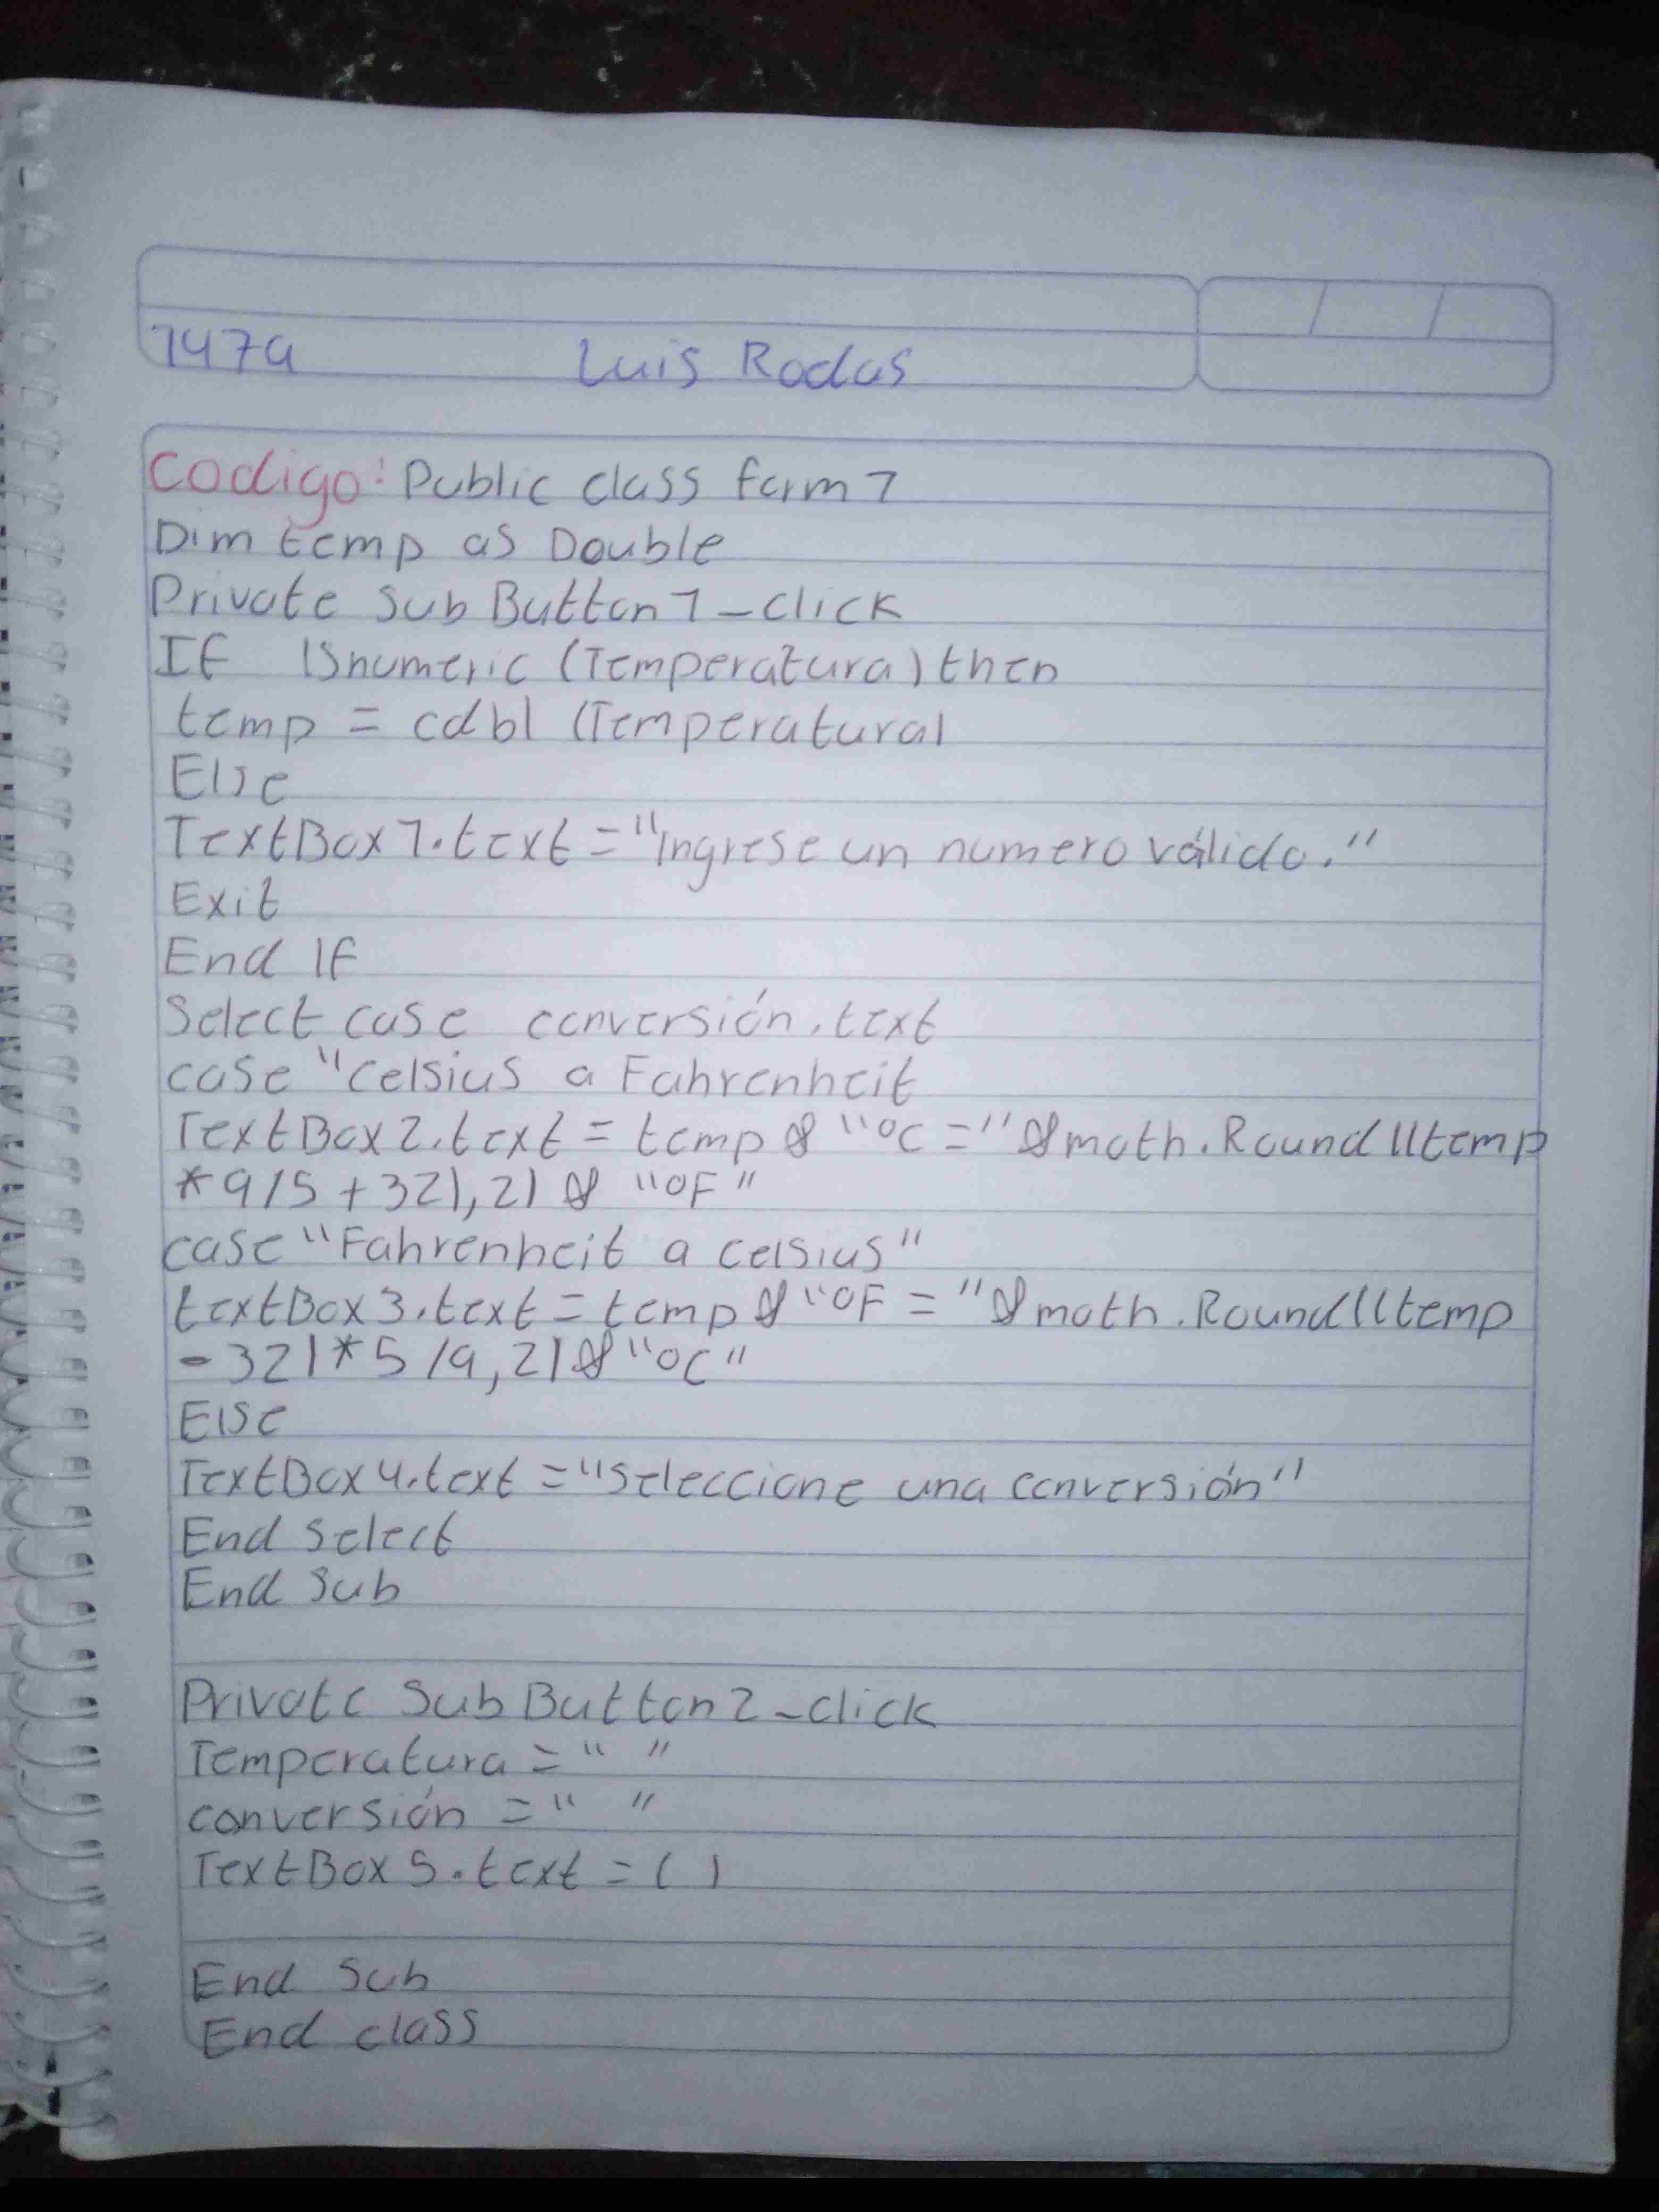 1479 Luis Rodas
Codigo: Public class form 1
Dim temp as Double
Private Sub Button 1_click
If Isnumeric (Temperatura) then
temp = cdbl (Temperatura)
Else
TextBox 1.text = "Ingrese un numero válido."
Exit
End If
Select case conversión.text
case "Celsius a Fahrenheit
TextBox 2.text = temp & "°C =" & math.Round ((temp
* 9/5 + 32), 2) & "°F"
case "Fahrenheit a Celsius"
textBox 3.text = temp & "°F = " & math.Round ((temp
- 32) * 5 /9, 2) & "°C"
Else
TextBox 4.text = "Seleccione una conversión"
End Select
End Sub
Private Sub Button 2_click
Temperatura = " "
conversión = " "
TextBox 5.text = ( )
End Sub
End class